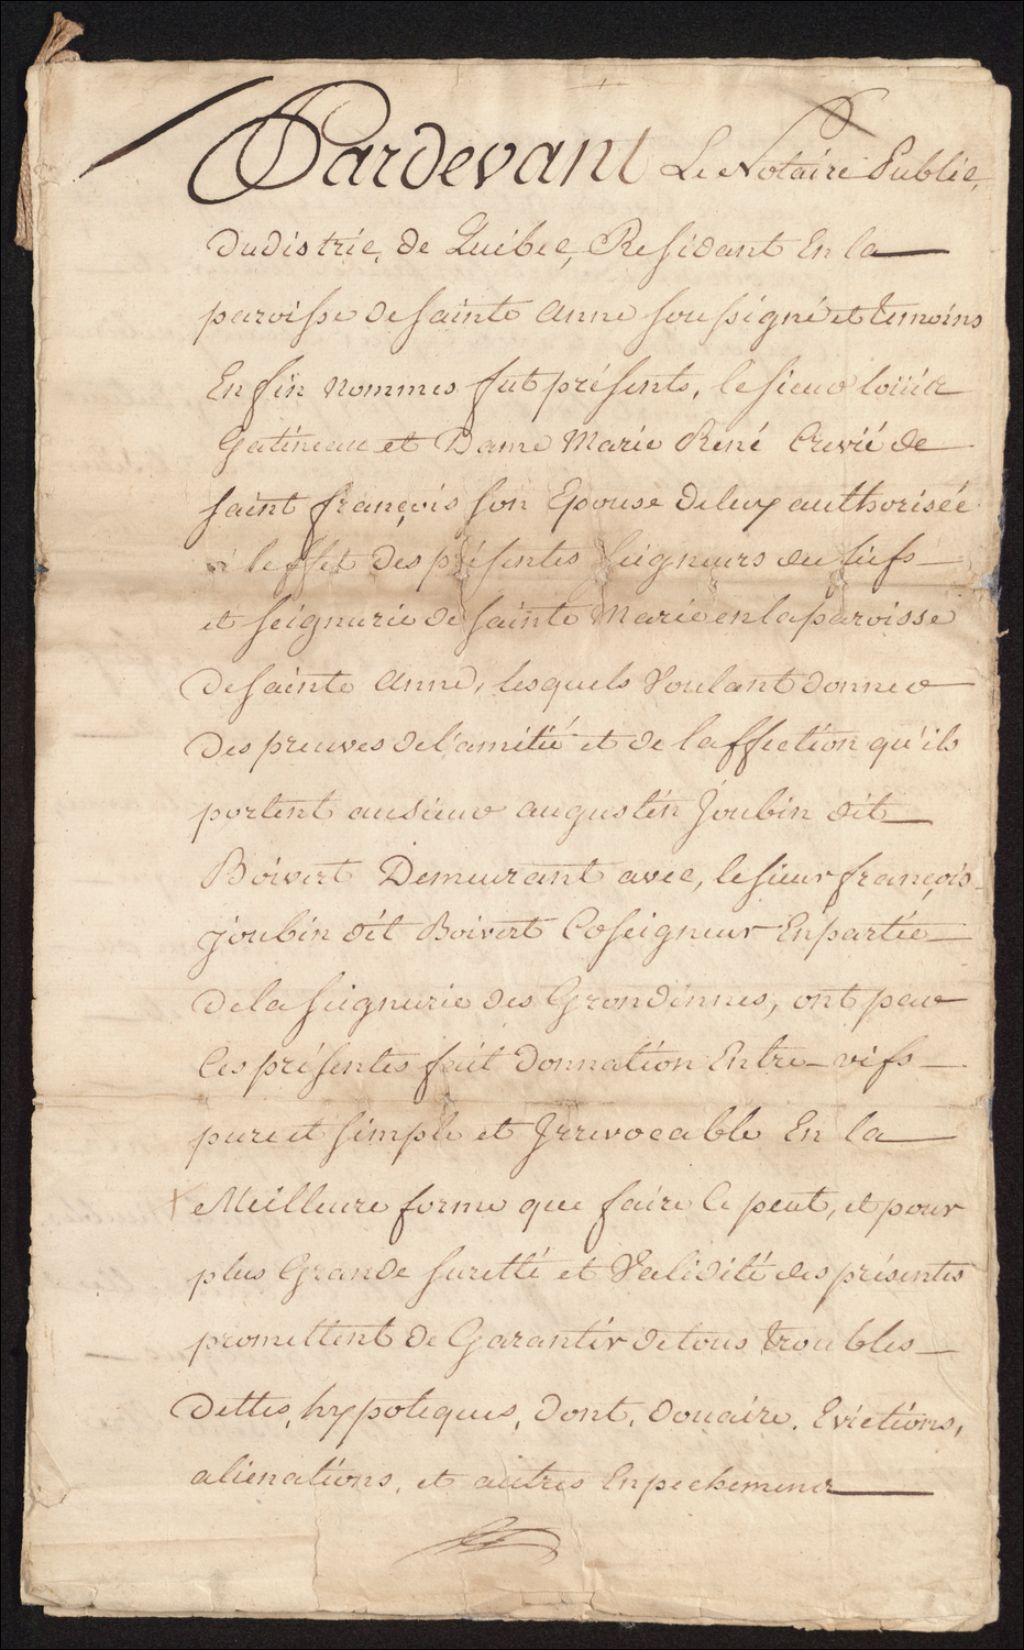 Pardevant Le Notaire Public,
Du district, de Quebec, Residant En la
paroisse de sainte Anne soussigné et temoins
En fin nommes fut présents, le sieur loüis
Gatineau et Dame Marie René Crevié de
saint françois son Epouse de luy authorisée
a leffet des présentes seigneurs du fiefs
et seigneurie de sainte Marie en la paroisse
De sainte Anne, lesquels Voulant donner
Des preuves de l'amitié et de laffection qu'ils
portent au sieur augustin Joubin dit
Boivert Demeurant avec, le sieur françois
Joubin dit Boivert Coseigneur En partie
de la seigneurie des Grondinnes, ont par
Ces présentes fait Donnation Entre-vifs
pure et simple et Irrevocable En la
Meilleure forme que faire Ce peut, et pour
plus Grande suretté et Validité des présentes
promettent de Garantir de tous troubles
Dettes, hypoteques, Dont, Douaire, Evictions,
alienations, et autres Enpechemens